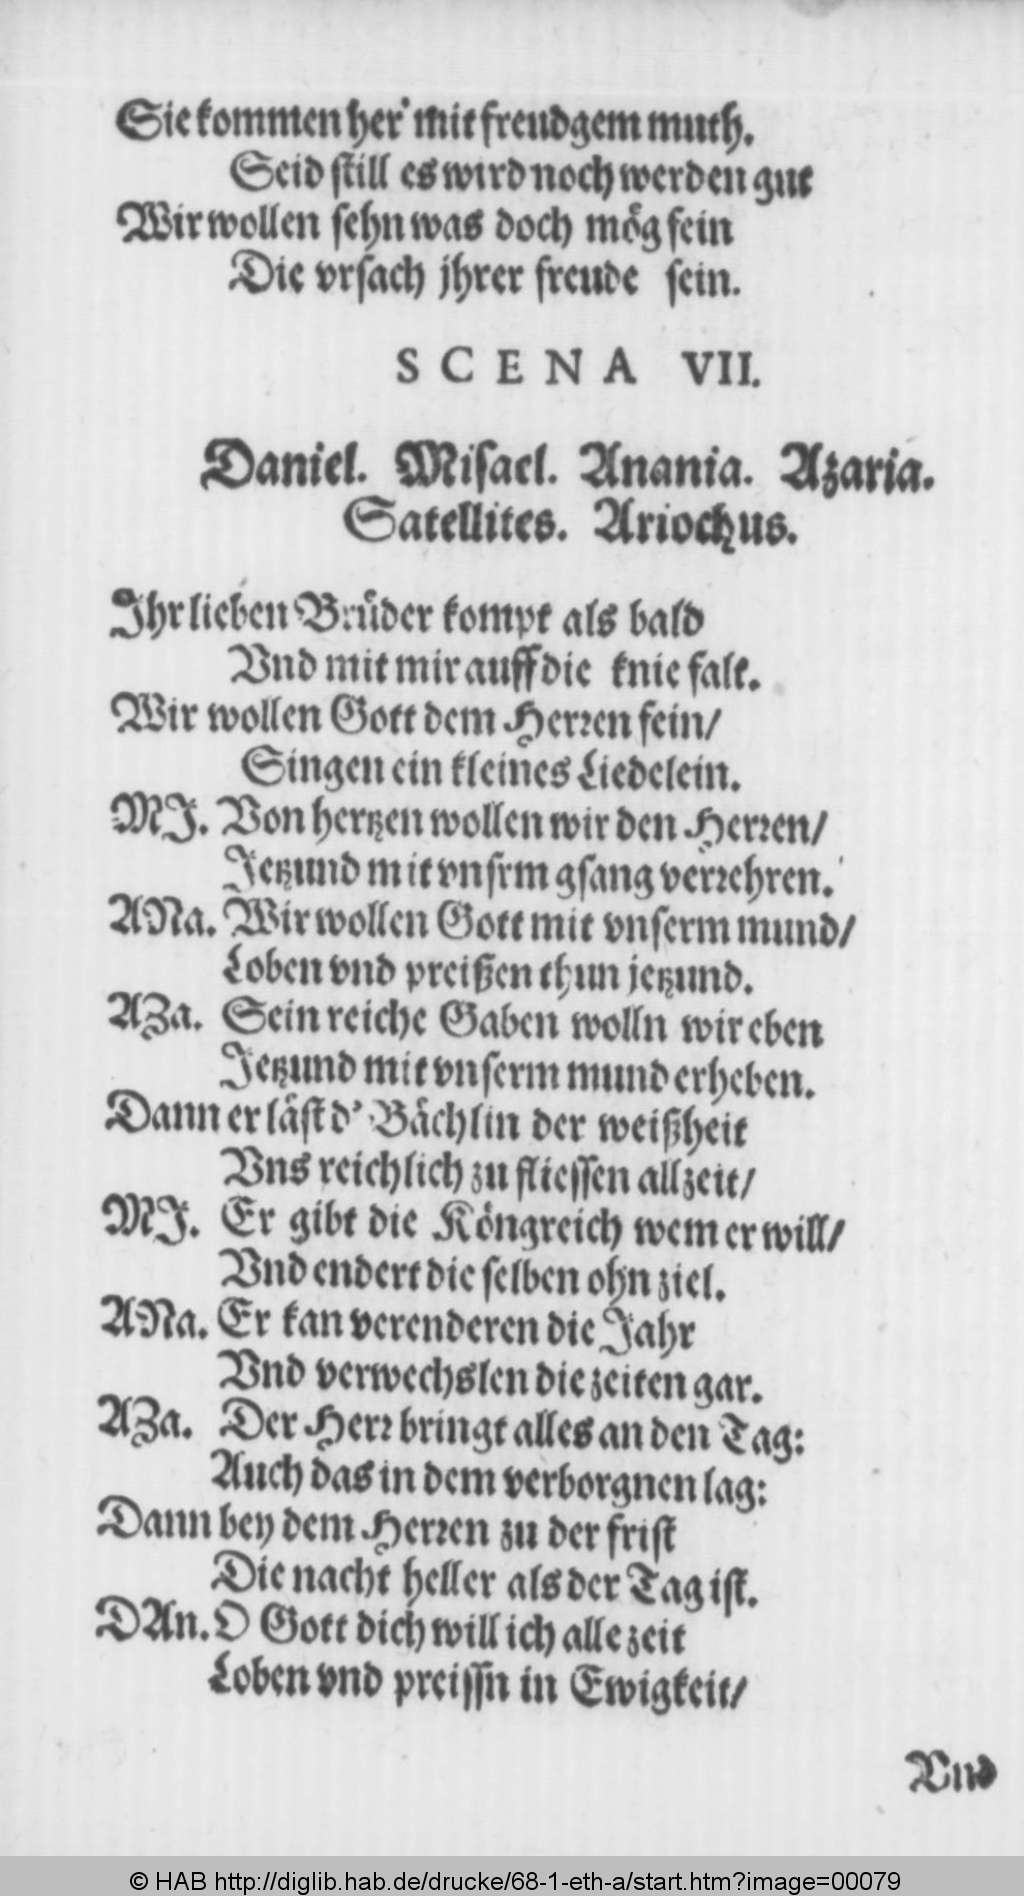 Sie kommen her mit freudgem muth.
Seid still es wird noch werden gut
Wir wollen sehn was doch mög sein
Die vrsach jhrer freude sein.
SCENA VII.
Daniel. Misael. Anania. Azaria.
Satellites. Ariochus.
Ihr lieben Brüder kompt als bald
Vnd mit mir auff die knie falt.
Wir wollen Gott dem Herren fein/
Singen ein kleines Liedelein.
MI. Von hertzen wollen wir den Herren/
Jetzund mit vnsrm gsang verrehren.
ANa. Wir wollen Gott mit vnserm mund/
Loben vnd preißen thun jetzund.
AZa. Sein reiche Gaben wolln wir eben
Jetzund mit vnserm mund erheben.
Dann er läst d' Bächlin der weißheit
Vns reichlich zu fliessen allzeit/
MI. Er gibt die Köngreich wem er will/
Vnd endert die selben ohn ziel.
ANa. Er kan verenderen die Jahr
Vnd verwechslen die zeiten gar.
AZa. Der Herr bringt alles an den Tag:
Auch das in dem verborgnen lag:
Dann bey dem Herren zu der frist
Die nacht heller als der Tag ist.
DAn. O Gott dich will ich alle zeit
Loben vnd preissn in Ewigkeit/
Vnd
© HAB http://diglib.hab.de/drucke/68-1-eth-a/start.htm?image=00079